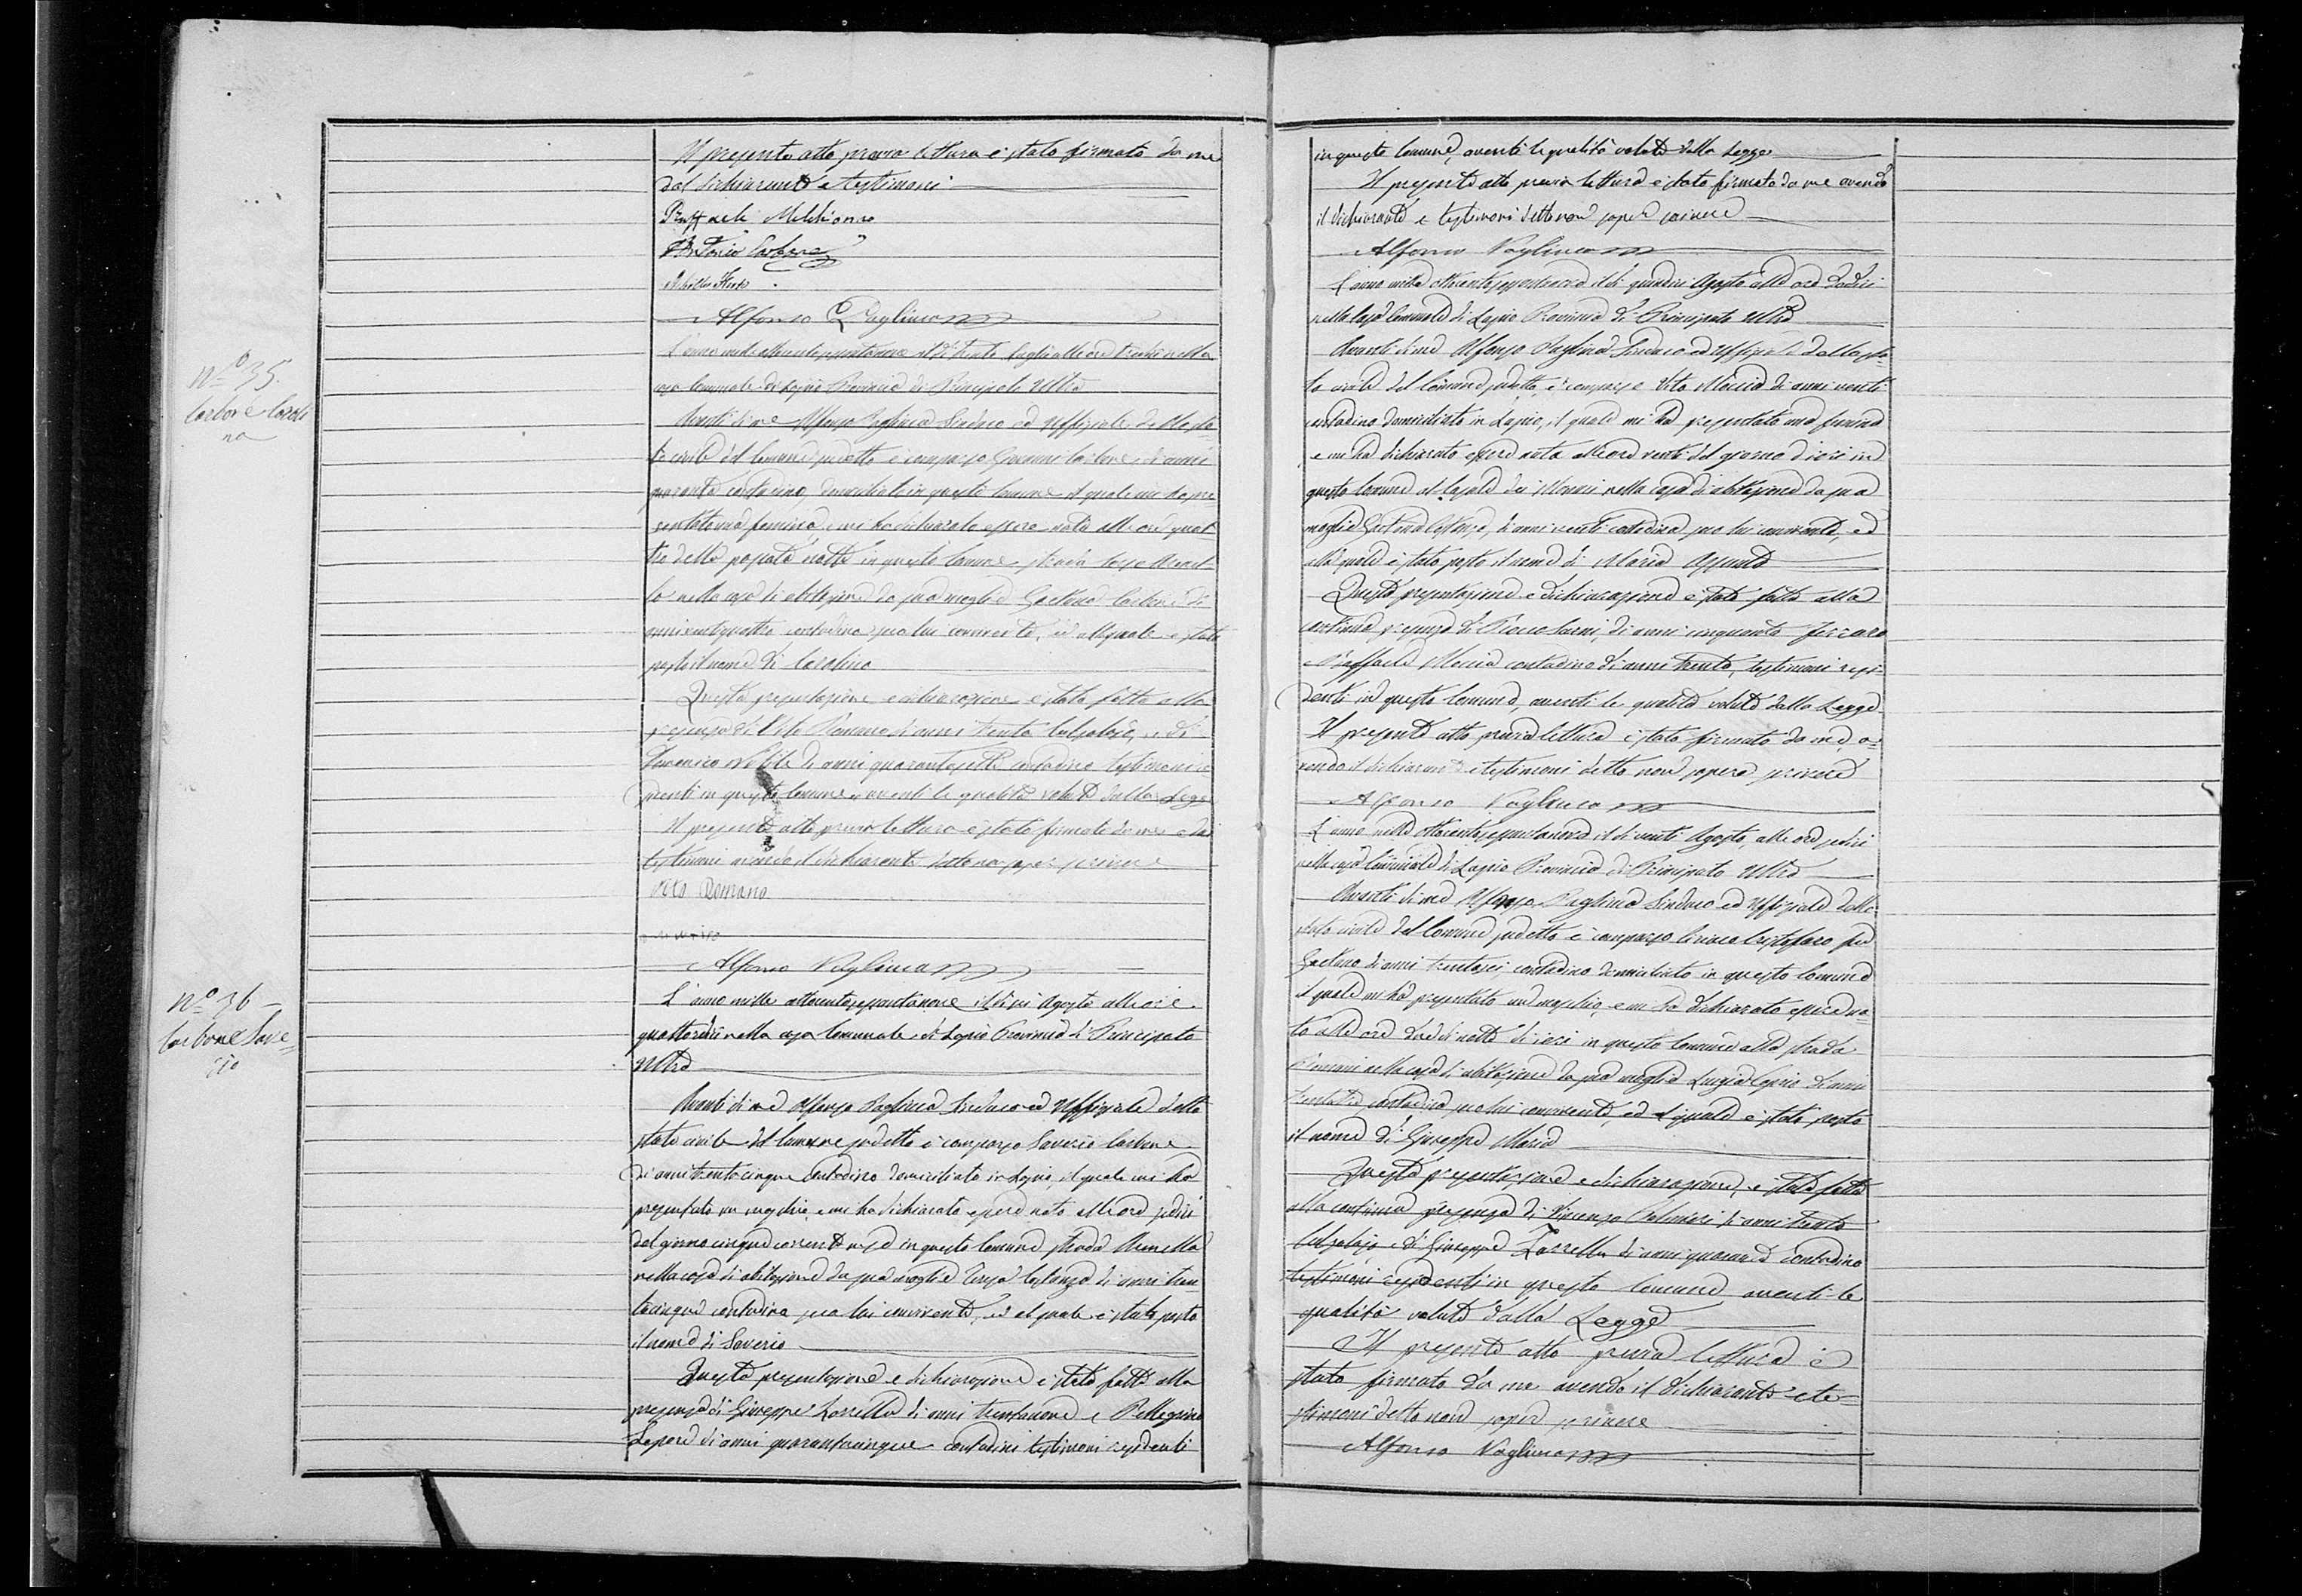 Il presente atto previa lettura è stato firmato da me
dal dichiarante e testimoni
Raffaele Melchionno
Antonio Carbone
Alfonso Pagliuca
Nº 35.
Carbone Caroli
na
L'anno mille ottocentosessantanove il dì trenta Luglio alle ore tredici nella
casa Comunale di Lapio Provincia di Principato Ultra
Avanti di me Alfonso Pagliuca Sindaco ed Uffiziale dello sta=
to civile del Comune sudetto è comparso Giovanni Carbone di anni
quaranta contadino, domiciliato in questo Comune il quale mi ha pre
sentato una femina, e mi ha dichiarato essere nata alle ore quat
tro della passata notte in questo Comune strada
nella casa di abitazione da sua moglie Gaetana Carbone di
anni ventiquattro contadina seco lui convivente, ed alla quale è stato
posto il nome di Carolina
Questa presentazione e dichiarazione è stata fatta alla
presenza di Vito Romano di anni trenta Calzolajo, e di
Domenico Nobile di anni quarantasette contadino testimoni re
sidenti in questo Comune, aventi le qualità volute dalla Legge
Il presente atto previa lettura è stato firmato da me e dai
testimoni avendo il dichiarante detto non saper scrivere
Vito Romano
Alfonso Pagliuca
Nº 36 –
Carbone Save=
rio
L'anno mille ottocentosessantanove il dì sei Agosto alle ore
quattordici nella casa Comunale di Lapio Provincia di Principato
Ultra
Avanti di me Alfonso Pagliuca Sindaco ed Uffiziale dello
stato civile del Comune sudetto è comparso Saverio Carbone
di anni trentacinque Contadino domiciliato in Lapio, il quale mi ha
presentato un maschio, e mi ha dichiarato essere nato alle ore sedici
del giorno cinque corrente mese in questo Comune strada Arenella
nella casa di abitazione da sua moglie Teresa Costanza di anni tren
tacinque contadina seco lui convivente, ed al quale è stato posto
il nome di Saverio
Questa presentazione e dichiarazione è stata fatta alla
presenza di Giuseppe Zarrella di anni trentanove e Pellegrino
Lepore di anni quarantacinque contadini testimoni residenti
in questo Comune, aventi le qualità volute dalla Legge
Il presente atto previa lettura è stato firmato da me avendo
il dichiarante e testimoni detto non saper scrivere
Alfonso Pagliuca
L'anno mille ottocentosessantanove il dì quindici Agosto alle ore dodici
nella casa Comunale di Lapio Provincia di Principato Ultra
Avanti di me Alfonso Pagliuca Sindaco ed Uffiziale dello sta=
to civile del Comune sudetto, è comparso Vito Moccia di anni venti
contadino domiciliato in Lapio, il quale mi ha presentato una femina
e mi ha dichiarato essere nata alle ore venti del giorno di ieri in
questo Comune al Casale dei Moccii nella casa di abitazione da sua
moglie Costanza, di anni venti contadina seco lui convivente, ed
alla quale è stato posto il nome di Maria Assunta
Questa presentazione e dichiarazione è stata fatta alla
continua presenza di Rocco Sarni, di anni cinquanta ferraro
e Raffaele Moccia contadino di anni trenta, testimoni resi=
denti in questo Comune, aventi le qualità volute dalla Legge
Il presente atto previa lettura è stato firmato da me a=
vendo il dichiarante e testimoni detto non sapere scrivere
Alfonso Pagliuca
L'anno mille ottocentosessantanove il dì venti Agosto, alle ore sedici
nella casa Comunale di Lapio Provincia di Principato Ultra
Avanti di me Alfonso Pagliuca Sindaco ed Uffiziale dello
stato civile del Comune sudetto è comparso Ciriaco Cristofaro fu
Gaetano di anni trentasei contadino domiciliato in questo Comune
il quale mi ha presentato un maschio, e mi ha dichiarato essere na=
to alle ore due di notte di ieri in questo Comune alla strada
Romani nella casa di abitazione da sua moglie Luigia Caprio di anni
trentatre contadina seco lui convivente, ed al quale è stato posto
il nome di Giuseppe Maria
Questa presentazione e dichiarazione, è stata fatta
alla continua presenza di Vincenzo di anni trenta
Calzolajo e di Giuseppe Zarrella di anni quaranta contadino
testimoni residenti in questo Comune aventi le
qualità volute dalla Legge
Il presente atto previa lettura è
stato firmato da me avendo il dichiarante e te=
stimoni detto non saper scrivere
Alfonso Pagliuca